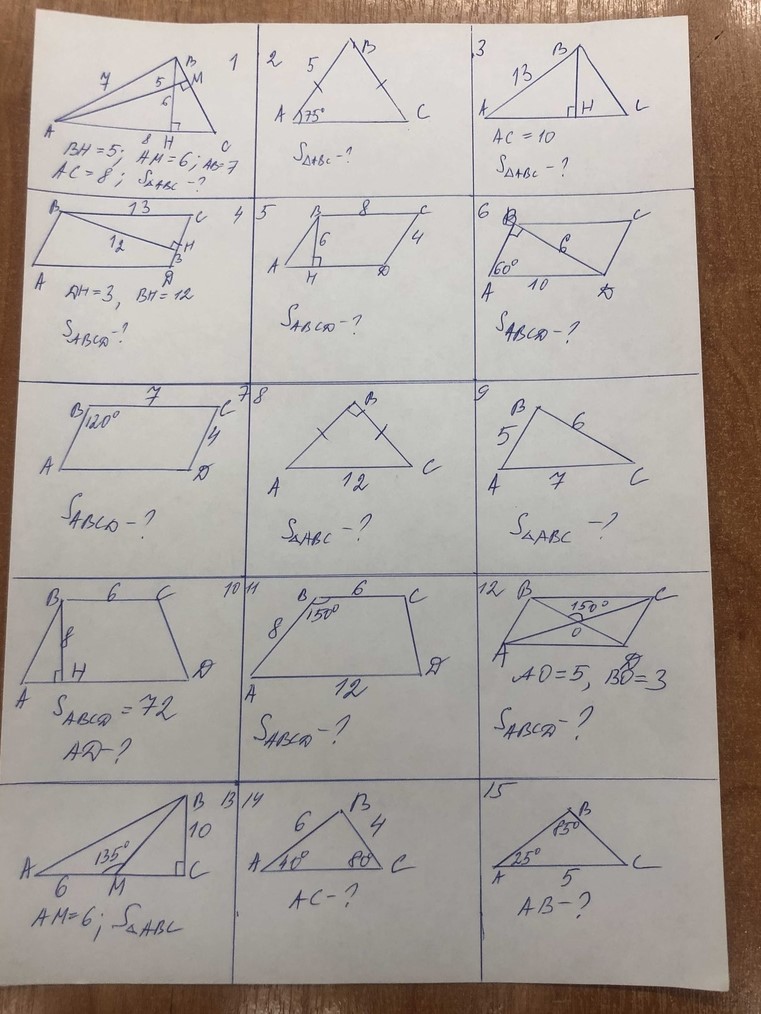 1
7
B
M
5
6
A
8
H
C
BH = 5; AM = 6; AB = 7
AC = 8; S△ABC - ?
2
B
5
A
75°
C
S△ABC - ?
3
B
13
A
H
C
AC = 10
S△ABC - ?
4
B
13
C
12
H
3
A
D
DH = 3, BH = 12
SABCD - ?
5
B
8
C
6
4
A
H
D
SABCD - ?
6
B
C
6
60°
A
10
D
SABCD - ?
7
B
7
C
120°
4
A
D
SABCD - ?
8
B
A
12
C
S△ABC - ?
9
B
6
5
A
7
C
S△ABC - ?
10
B
6
C
8
A
H
D
SABCD = 72
AD - ?
11
B
6
C
150°
8
A
12
D
SABCD - ?
12
B
C
150°
O
A
D
AO = 5, BO = 3
SABCD - ?
13
B
10
135°
A
6
M
C
AM = 6; S△ABC
14
B
6
4
A
40°
80°
C
AC - ?
15
B
85°
25°
A
5
C
AB - ?